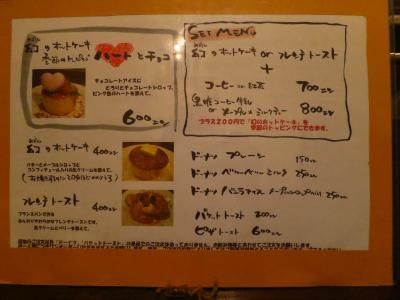 幻のホットケーキ
季節のトッピング
ハートとチョコ
チョコレートアイスに
とろりとチョコレートシロップ、
ピンク色のハートを添えて。
600エン
SET MENU
幻のホットケーキ or フレンチトースト
+
コーヒー or 紅茶 700エン
黒糖コーヒー牛乳
or メープルミルクティー 800エン
プラス200円で「幻のホットケーキ」を
季節のトッピングにできます。
幻のホットケーキ 400エン
バターとメープルシロップと
コンフィチュール入りの生クリームを添えて。
フレンチトースト 400エン
フランスパンで作る
ふんわりやわらかなフレンチトーストです。
生クリームとベリーを添えて。
ドーナツ プレーン 150エン
ドーナツ 250エン
ドーナツ バニラアイス 250エン
バケットトースト 200エン
ピザトースト 600エン